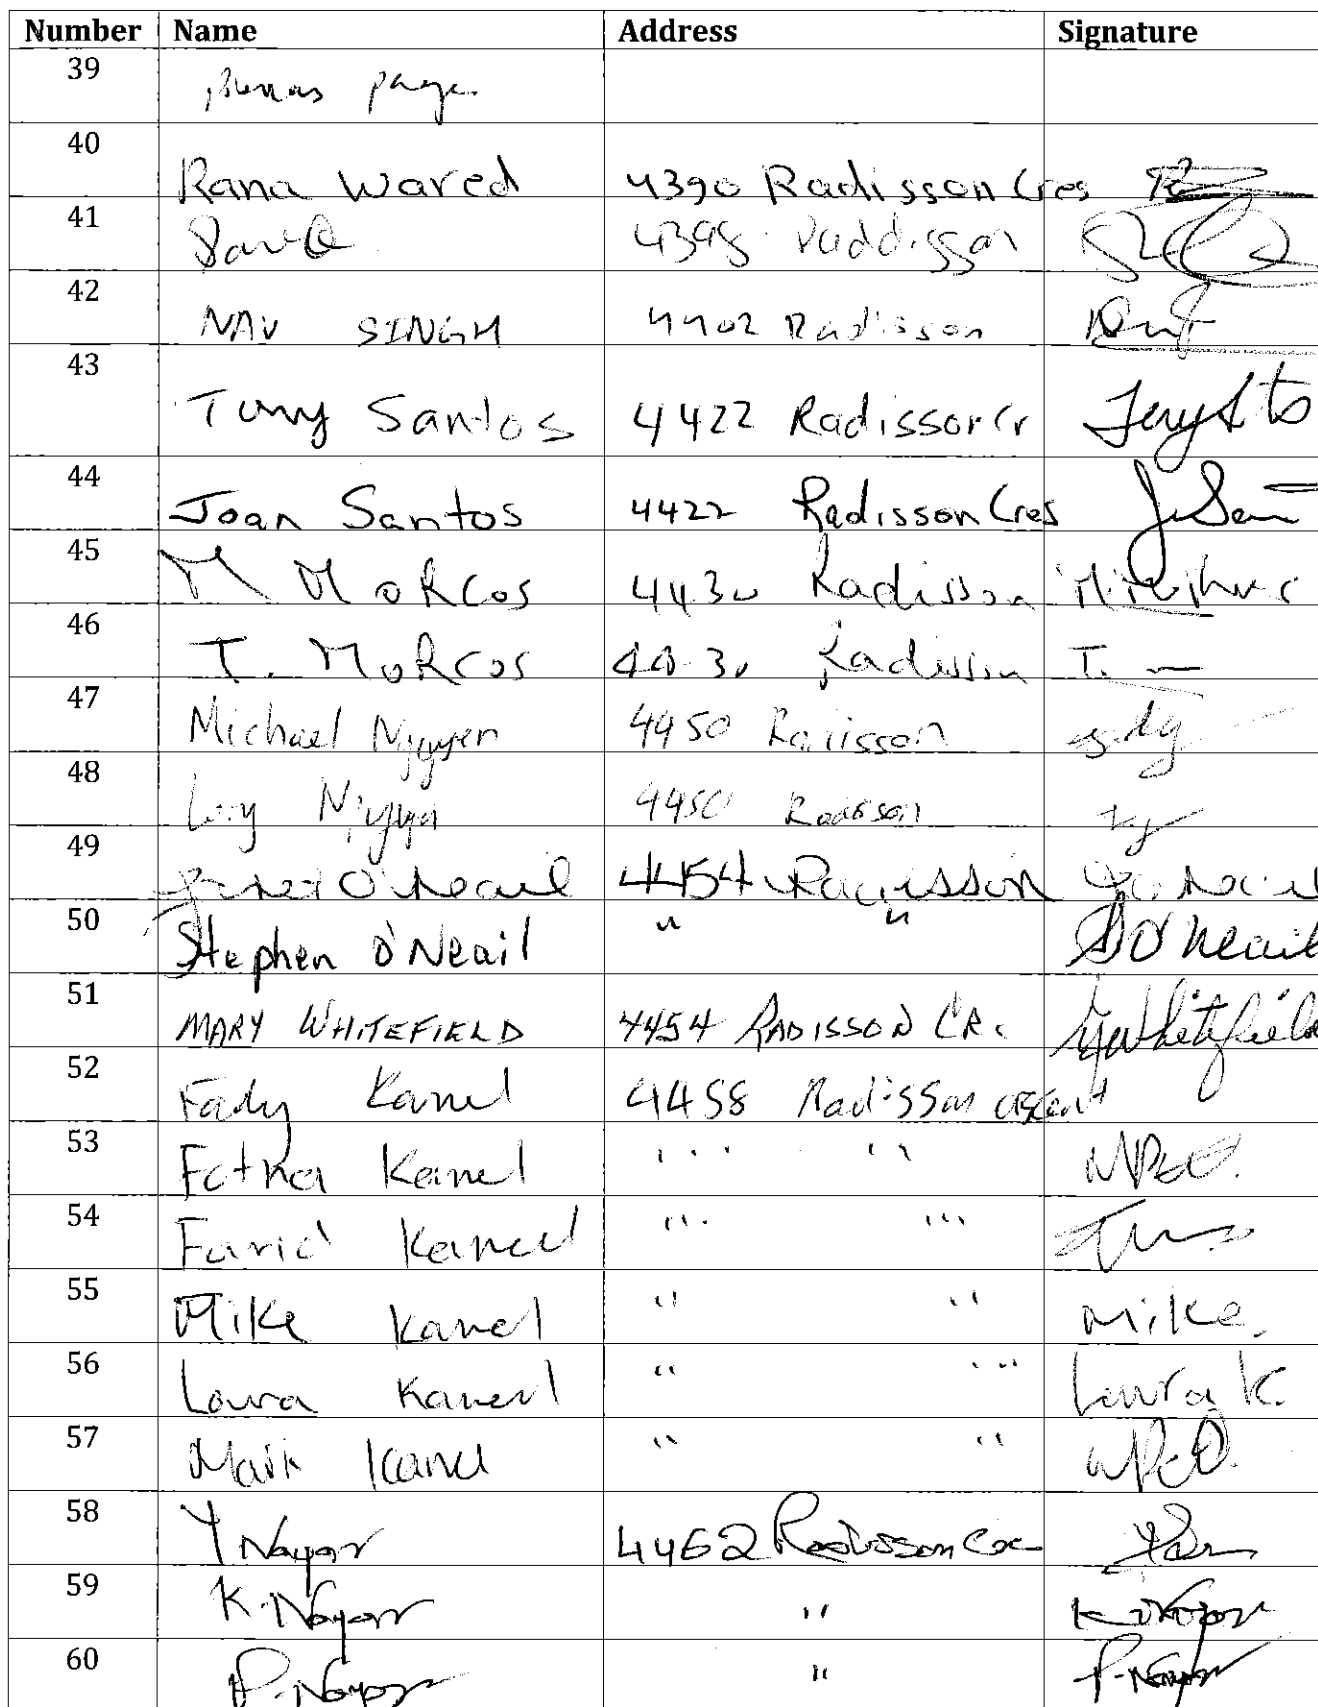 Number Name Address Signature
39 page
40 Rana Wared 4390 Radisson Cres
41 4398
42 NAV SINGH 4402 Radisson
43 Tony Santos 4422 Radisson Cr
44 Joan Santos 4422 Radisson Cres
45 M MoRcos 4430 Radisson
46 I. MoRcos 4430 Radisson I.
47 Michael Nguyen 4450 Radisson
48 Nguyen 4450 Radisson
49 O'Neail 4454 Radisson
50 Stephen O'Neail " " SO'Neail
51 MARY WHITEFIELD 4454 RADISSON CR. MWhitefield
52 Fady Kamel 4458 Radisson crescent
53 Kamel " "
54 Farid Kamel " "
55 Mike Kamel " " Mike.
56 Laura Kamel " " Laura K.
57 Mark Kamel " "
58 Y Nayar 4462 Radisson
59 K. Nayar " K. Nayar
60 P. Nayar " P. Nayar